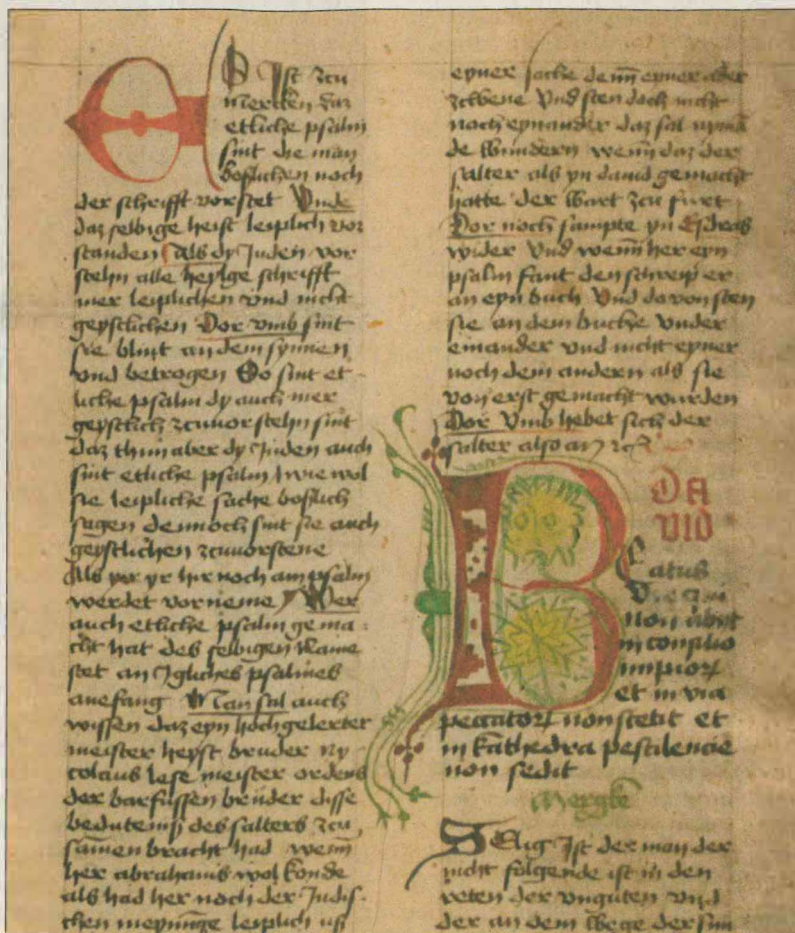 Es Ist zcu
mercken daz
etliche psalm
sint die man
boslichen noch
der schrifft vorstet Vnde
daz selbige heist leiplich vor
standen Als dy Juden vor
steln alle heylge schrifft
mer leiplichen vnd nicht
geystlichen Dor vmb sint
sie blint an dem synnen
vnd betrogen So sint et
liche psalm dy auch mer
geystlich zcuuorsteln sint
daz thun aber dy Juden auch
sint etliche psalm wie wol
sie leipliche sache boslich
sagen dennoch sint sie auch
geystlichen zcuuorstene
Als yr hir noch am psalm
werdet vorneme Wer
auch etliche psalm gema
cht hat des selbigen Name
stet an Igliches psalmes
anefang Man sal auch
wissen daz eyn hochgelerter
meister heyst bruder ny
colaus lese meister ordens
der barfussen bruder disse
bedutenis des salters zcu
samen bracht had wenn
her abrahamis wol konde
als had her noch der Judis
chen meynunge leiplich uss
eyner sache denn eyner ader
zcwene Vnd sten doch nicht
noch eynander daz sal nyma
de wundern wenn daz der
salter als yn dauid gemacht
hatte der wart zcu
Dor noch sampte yn Esdras
wider Vnd wenn her eyn
psalm fant den schreip er
an eyn buch Vnd do von sten
sie an dem buche vnder
einander vnd nicht eyner
noch dem andern als sie
von erst gemacht wurden
Dor Vmb hebet sich der
salter also an
DA
VID
Beatus
vir qui
non abiit
in consilio
impior
et in via
peccator non stetit et
in kathedra pestilencie
non sedit
Mergke
SElig Ist der man der
nicht folgende ist in den
reten der vnguten vnd
der an dem wege der sun